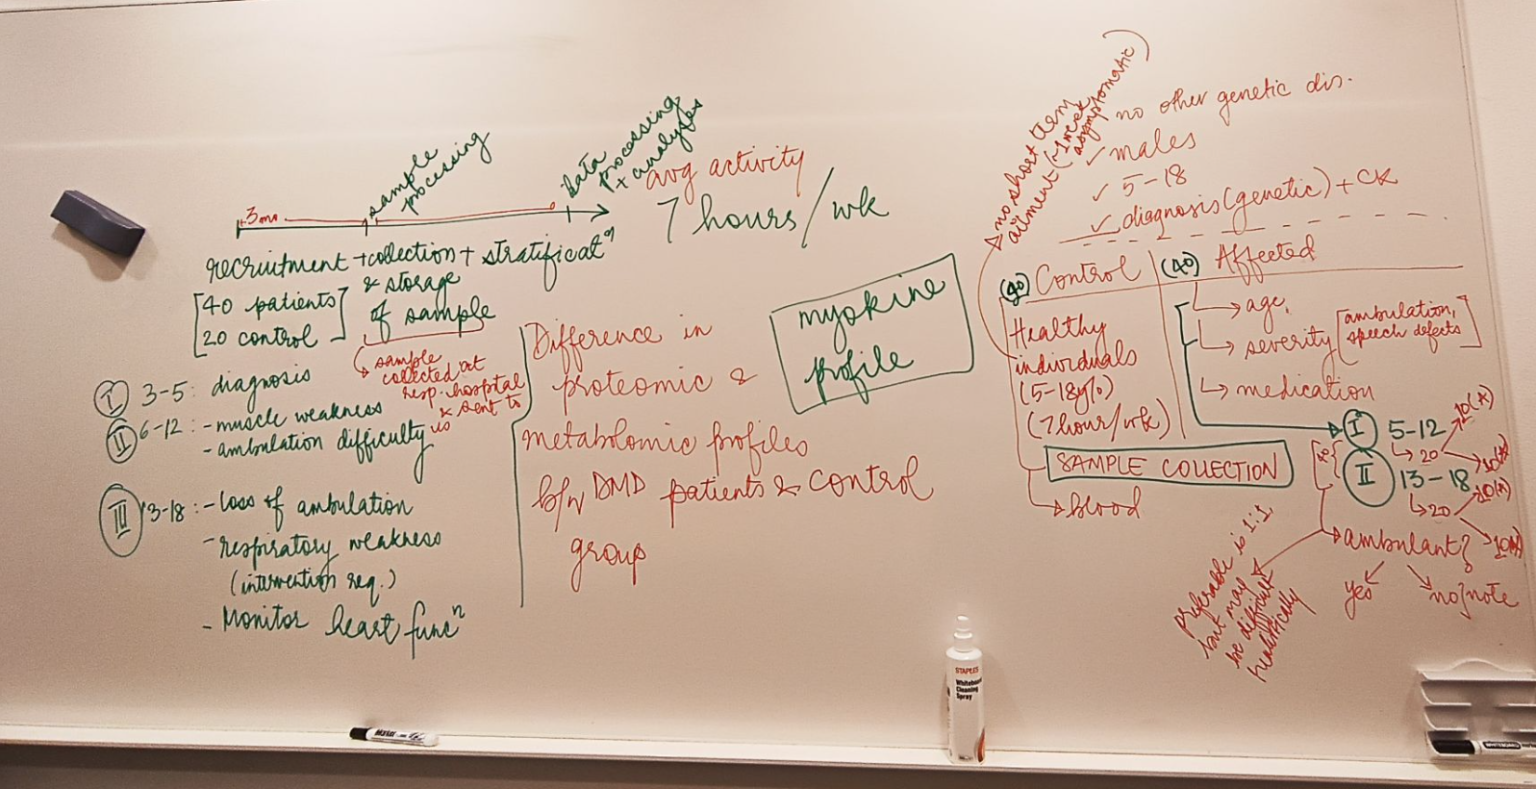 sample
processing
Data
processing
+ analyses
3mo
recruitment + collection + stratificatⁿ
[40 patients
20 control]
& storage
of sample
sample
collected at
resp. hospital
& sent to
us
I 3-5: diagnosis
II 6-12: - muscle weakness
- ambulation difficulty
III 13-18: - Loss of ambulation
- respiratory weakness
(intervention req.)
- Monitor heart funcⁿ
avg activity
7 hours/wk
Difference in
proteomic &
metabolomic profiles
b/w DMD patients & control
group
myokine
profile
no short term
ailment (~1 week
asymptomatic)
no other genetic dis.
✓ males
✓ 5-18
✓ diagnosis (genetic) + CK
(40) Control
(40) Affected
Healthy
individuals
(5-18y/o)
(7hour/wk)
SAMPLE COLLECTION
→ blood
→ age,
→ severity [ambulation,
speech defects]
→ medication
I 5-12
→ 20
10(A)
II 13-18
→ 20
→ ambulant?
yes
no} note
preferable is 1:1,
but may
be difficult
realistically
STAPLES
Whiteboard
Cleaning
Spray